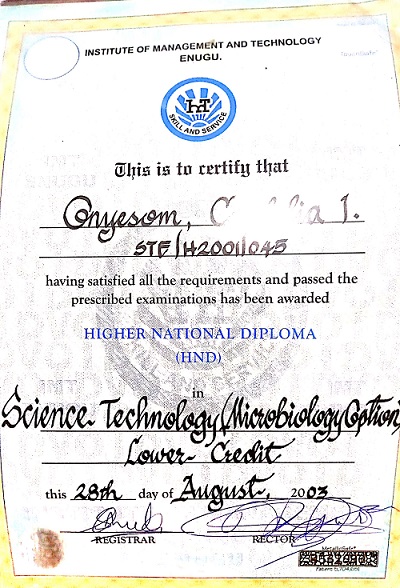 INSTITUTE OF MANAGEMENT AND TECHNOLOGY
ENUGU.
IMT
SKILL AND SERVICE
This is to certify that
Onyesom, I.
STF/H2001/045
having satisfied all the requirements and passed the
prescribed examinations has been awarded
HIGHER NATIONAL DIPLOMA
(HND)
in
Science Technology (Microbiology Option)
Lower Credit
this 28th day of August, 2003
REGISTRAR RECTOR